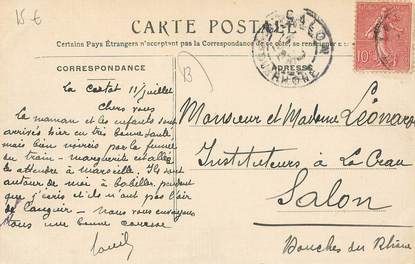 15 €
CARTE POSTALE
Certains Pays Étrangers n'acceptent pas la Correspondance de ce côté, se renseigner
CORRESPONDANCE
ADRESSE
B
SALON
RHONE
10
La Ciotat 11 juillet
Chers vous
La maman et les enfants sont
arrivés hier en très bonne santé
mais bien noircis par la fumée
du train – marguerite est allée
les attendre à marseille. Ils sont
autour de moi à babiller pendant
que j'écris et ils n'ont pas l'air
de languir – Nous vous envoyons
tous une bonne caresse
Monsieur et Madame Léonard
Instituteurs à La Crau
Salon
Bouches du Rhône